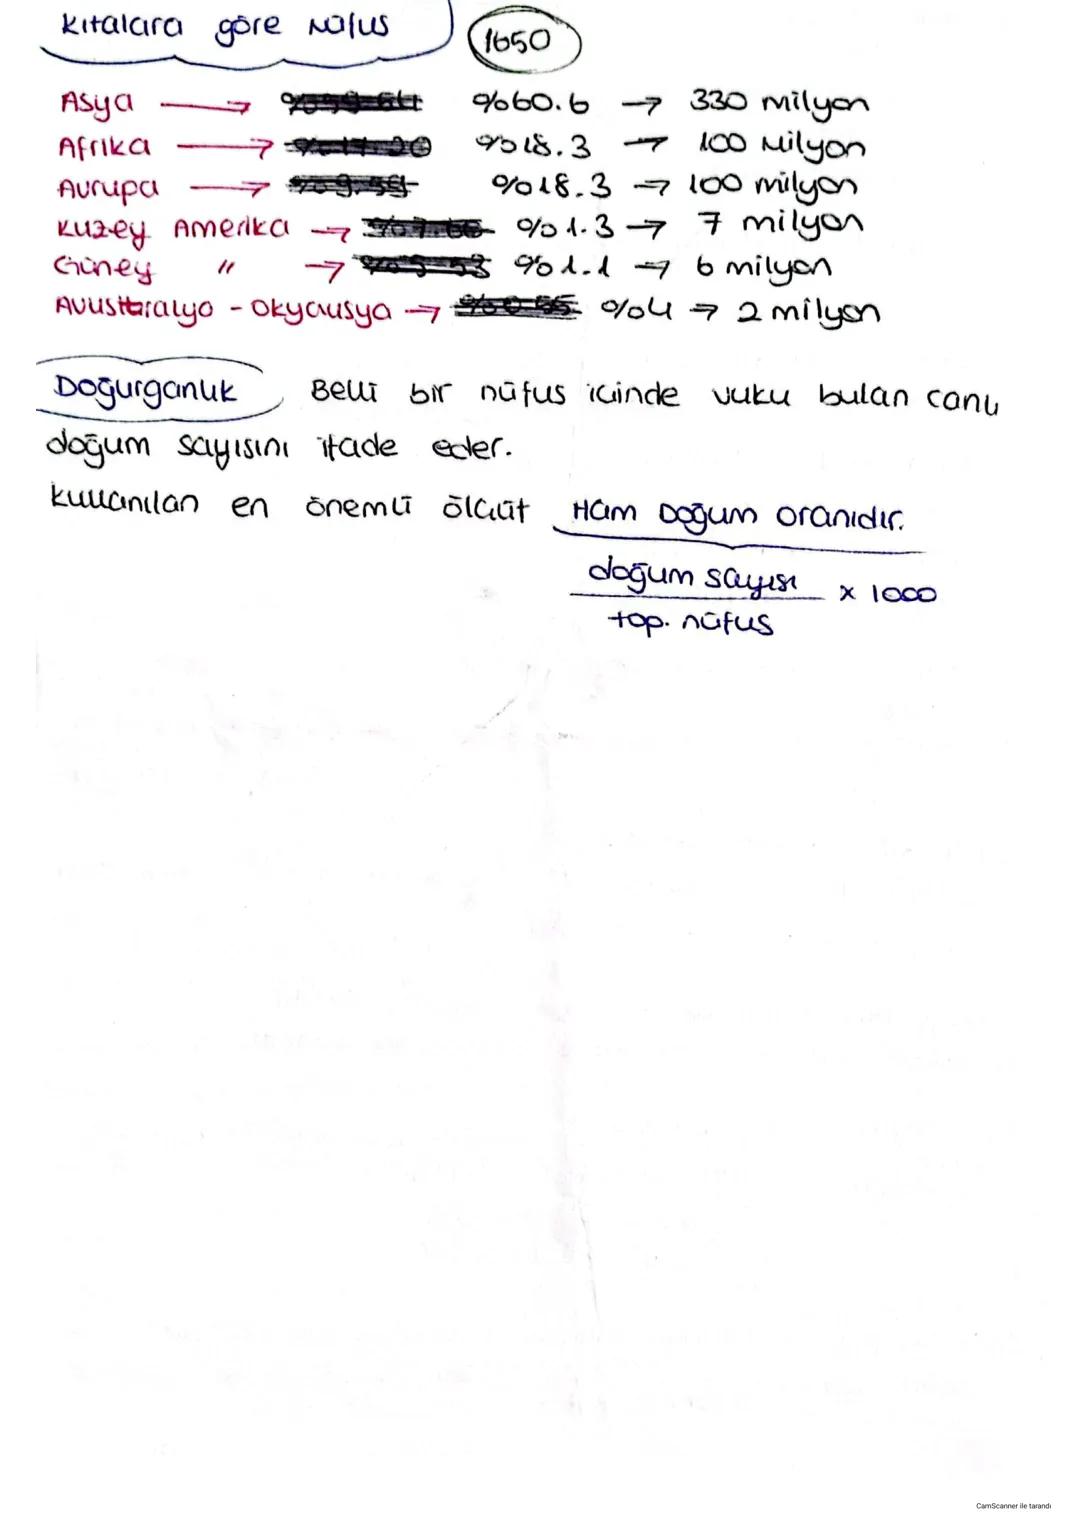 Kıtalara göre Nüfus 1650
Asya → %60.6 → 330 milyon
Afrika → %18.3 → 100 Milyon
Avrupa → %18.3 → 100 milyon
Kuzey Amerika → %1.3 → 7 milyon
Güney " → %1.1 → 6 milyon
Avustralya - Okyausya → %04 → 2 milyon
Doğurganlık Belli bir nüfus içinde vuku bulan canlı
doğum sayısını ifade eder.
Kullanılan en önemli ölçüt Ham Doğum oranıdır.
doğum sayısı x 1000
top. nüfus
CamScanner ile tarandı